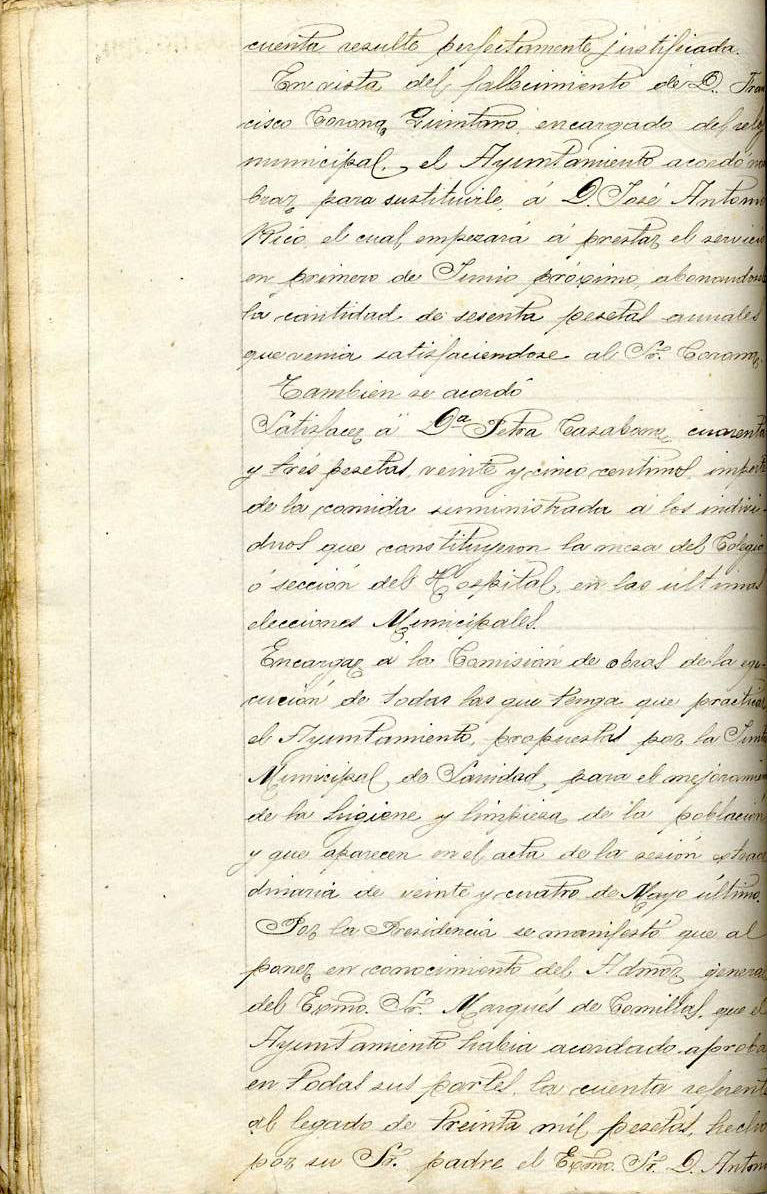 cuenta resulte perfectamente justificada.
En vista del fallecimiento de D. Fran
cisco Corona Quintano, encargado del reloj
municipal, el Ayuntamiento acordó nom
brar para sustituirle, á D. José Antonio
Rico, el cual empezará á prestar el servicio
en primero de Junio próximo, abonandose
la cantidad de sesenta pesetas anuales
que venia satisfaciendose al Sr. Corona.
Tambien se acordó
Satisfacer á Dª Petra Casabona, cuarenta
y tres pesetas, veinte y cinco centimos, importe
de la comida suministrada á los indivi-
duos que constituyeron la mesa del Colegio
ó sección del Hospital, en las últimas
elecciones Municipales.
Encargar á la Comisión de obras de la eje-
cución de todas las que tenga que practicar
el Ayuntamiento, propuestas por la Junta
Municipal de Sanidad, para el mejoramien
de la higiene y limpieza de la población
y que aparecen en el acta de la sesión extraor
dinaria de veinte y cuatro de Mayo último.
Por la Presidencia se manifestó que al
poner en conocimiento del Admor general
del Exmo. Sr. Marqués de Comillas, que el
Ayuntamiento habia acordado aprobar
en todas sus partes, la cuenta referente
al legado de treinta mil pesetas, hecho
por su Sr. padre el Exmo. Sr. D. Antonio